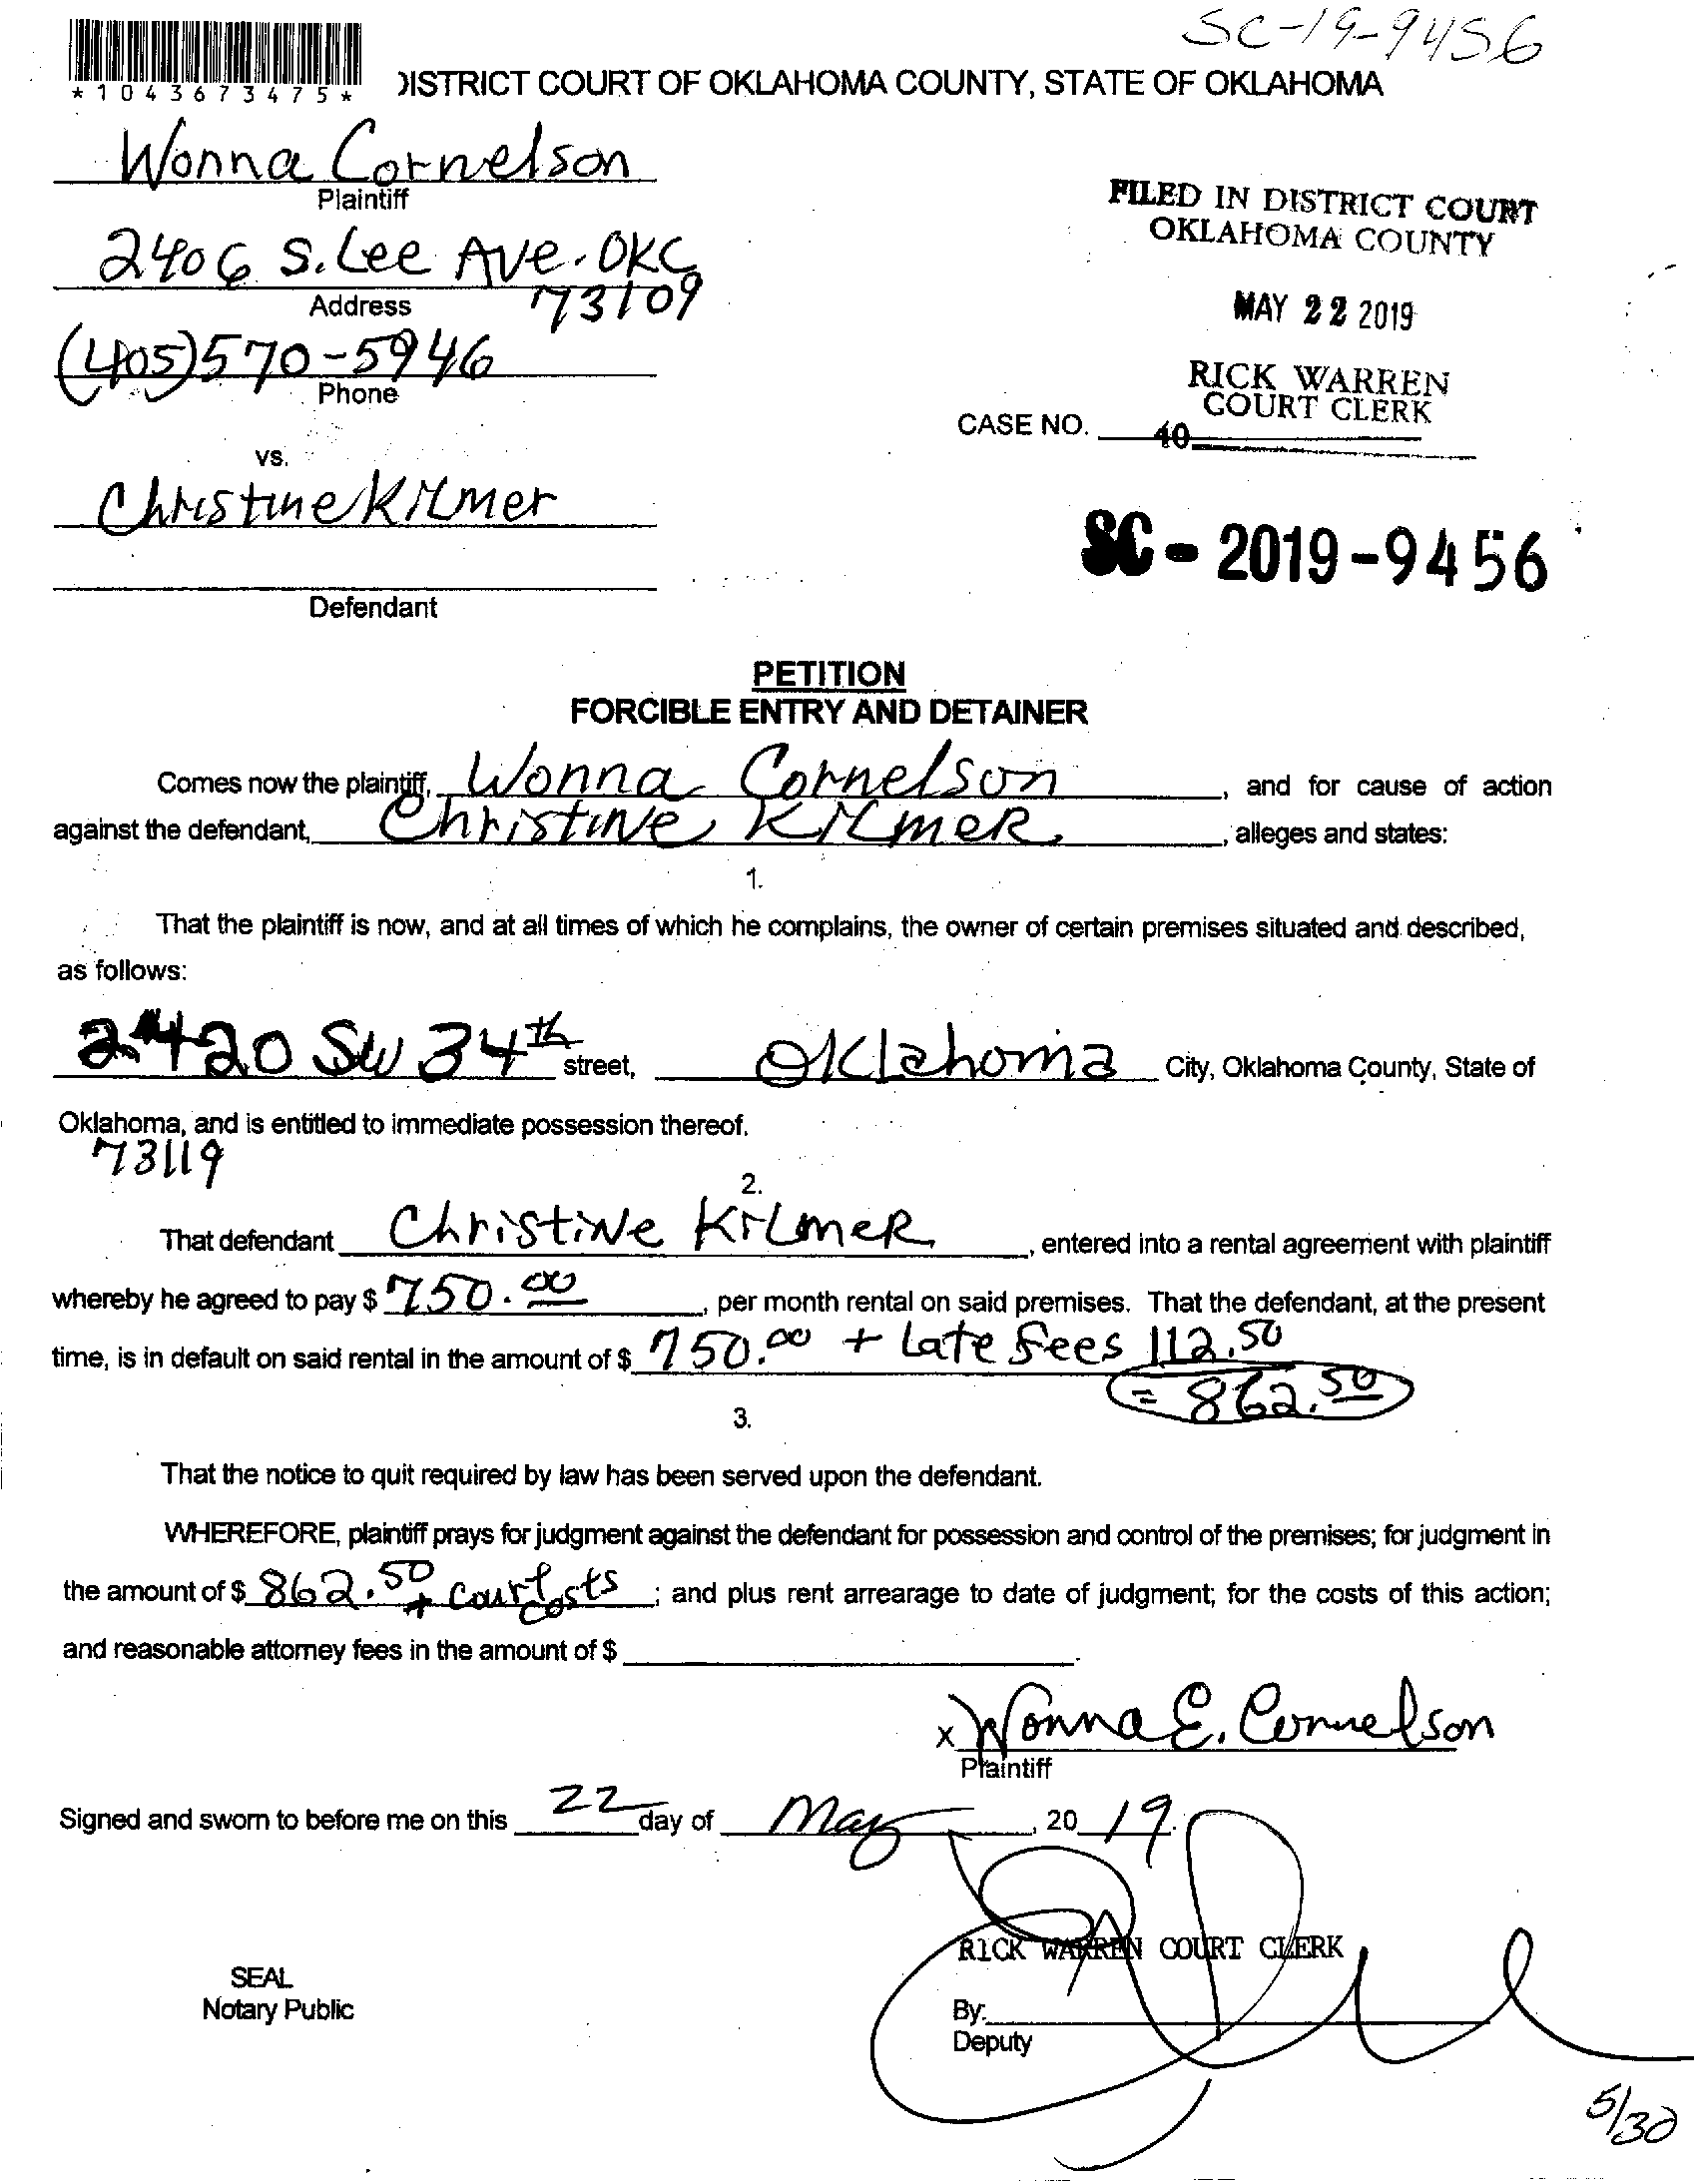 SC-19-9456
*1043673475*
DISTRICT COURT OF OKLAHOMA COUNTY, STATE OF OKLAHOMA
Wonna Cornelson
Plaintiff
2406 S. Lee Ave. OKC
Address 73109
(405)570-5946
Phone
FILED IN DISTRICT COURT
OKLAHOMA COUNTY
MAY 22 2019
RICK WARREN
COURT CLERK
CASE NO.
40
vs.
Christine Kilmer
Defendant
SC-2019-9456
PETITION
FORCIBLE ENTRY AND DETAINER
Comes now the plaintiff, Wonna Cornelson, and for cause of action
against the defendant, Christine Kilmer, alleges and states:
1.
That the plaintiff is now, and at all times of which he complains, the owner of certain premises situated and described,
as follows:
2420 SW 34th street, Oklahoma City, Oklahoma County, State of
Oklahoma, and is entitled to immediate possession thereof.
73119
2.
That defendant Christine Kilmer, entered into a rental agreement with plaintiff
whereby he agreed to pay $ 750.00, per month rental on said premises. That the defendant, at the present
time, is in default on said rental in the amount of $ 750.00 + Late fees 112.50
= 862.50
3.
That the notice to quit required by law has been served upon the defendant.
WHEREFORE, plaintiff prays for judgment against the defendant for possession and control of the premises; for judgment in
the amount of $ 862.50 + Court costs; and plus rent arrearage to date of judgment; for the costs of this action;
and reasonable attorney fees in the amount of $ .
x Wonna E. Cornelson
Plaintiff
Signed and sworn to before me on this 22 day of May, 2019.
RICK WARREN COURT CLERK
SEAL
Notary Public
By:
Deputy
5/30